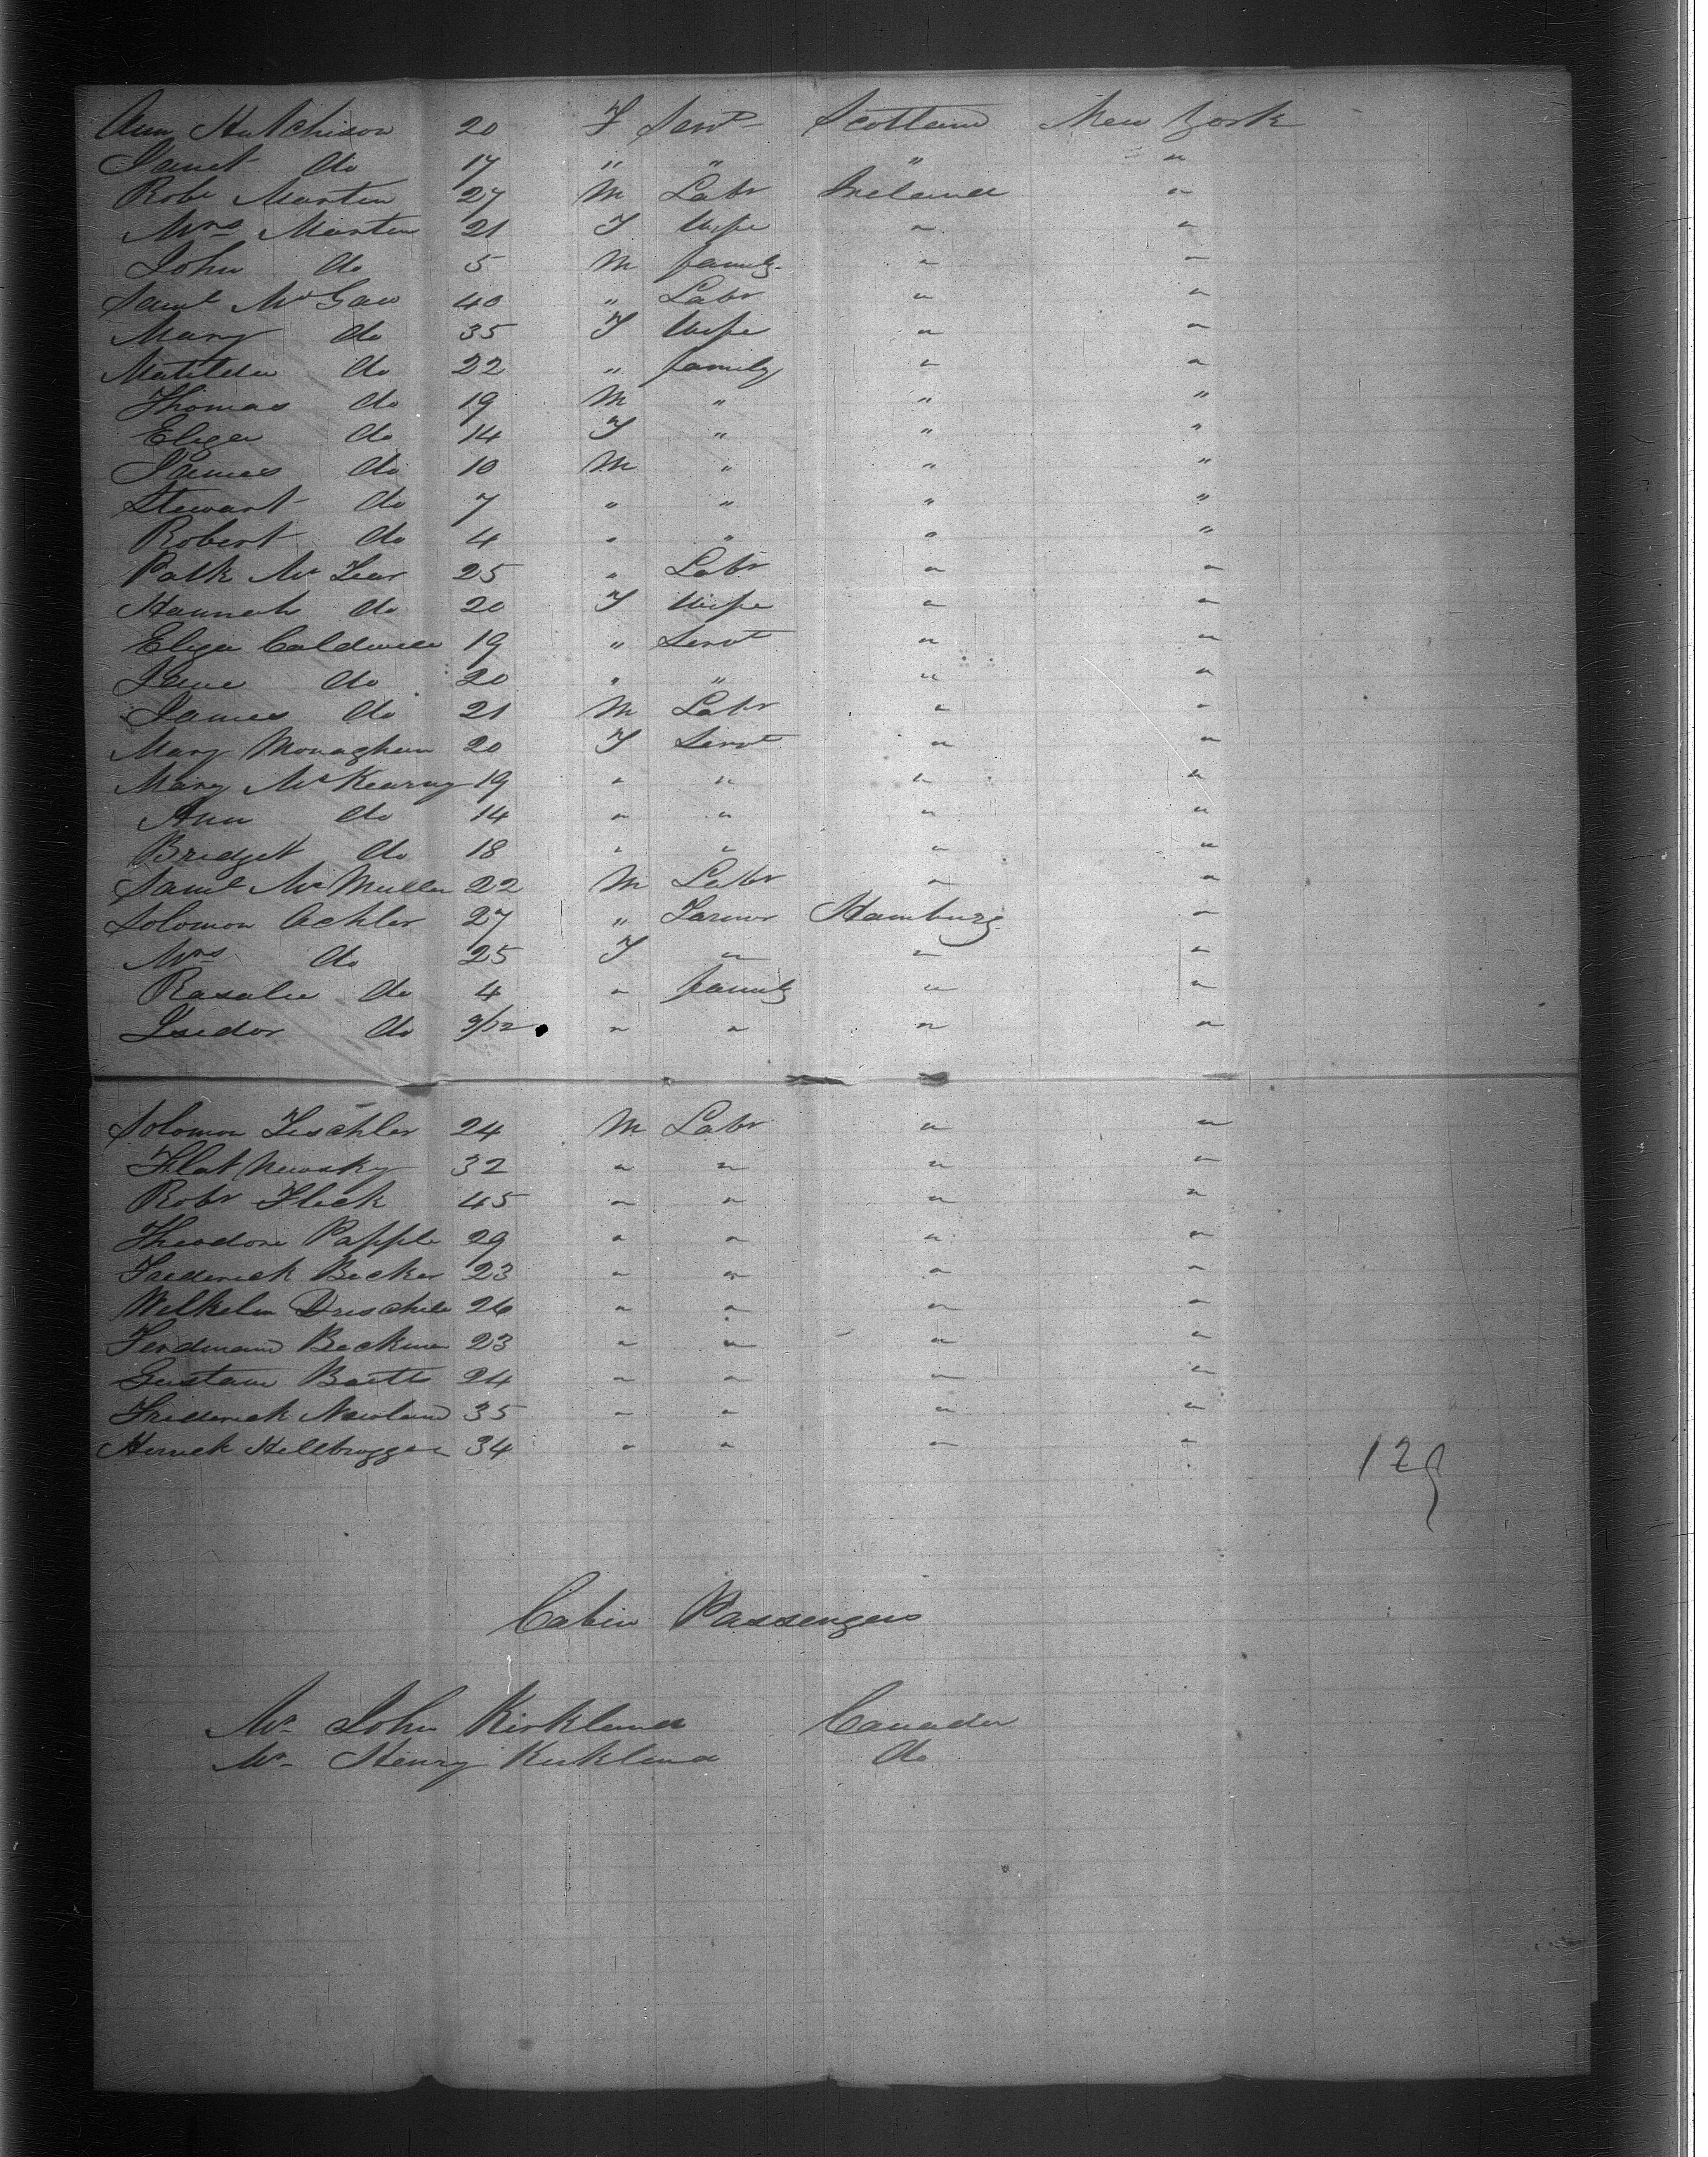 Ann Hutchison 20 F Servt Scotland New York
Janet do 17 " " " "
Robt Martin 27 M Labr Ireland "
Mrs Martin 21 F Wife " "
John do 5 M family " "
Saml McGaw 40 " Labr " "
Mary do 35 F Wife " "
Matilda do 22 " family " "
Thomas do 19 M " " "
Eliza do 14 F " " "
James do 10 M " " "
Stewart do 7 " " " "
Robert do 4 " " " "
Patk McLear 25 " Labr " "
Hannah do 20 F Wife " "
Eliza Caldwell 19 " Servt " "
Jane do 20 " " " "
James do 21 M Labr " "
Mary Monaghan 20 F Servt " "
Mary McKearny 19 " " " "
Ann do 14 " " " "
Bridget do 18 " " " "
Saml McMullen 22 M Labr " "
Solomon Achler 27 " Farmer Hamburg "
Mrs do 25 F " " "
Rasalie do 4 " family " "
Isedor do 9/12 " " " "
Solomon Tischler 24 M Labr " "
32 " " " "
Robt Fleck 45 " " " "
Theodore Papple 29 " " " "
Frederick Becker 23 " " " "
Wilhelm 26 " " " "
Ferdinand Beckman 23 " " " "
Gustave 24 " " " "
Frederick Newland 35 " " " "
34 " " " "
129
Cabin Passengers
Mr John Kirkland Canada
Mr Henry Kirkland do